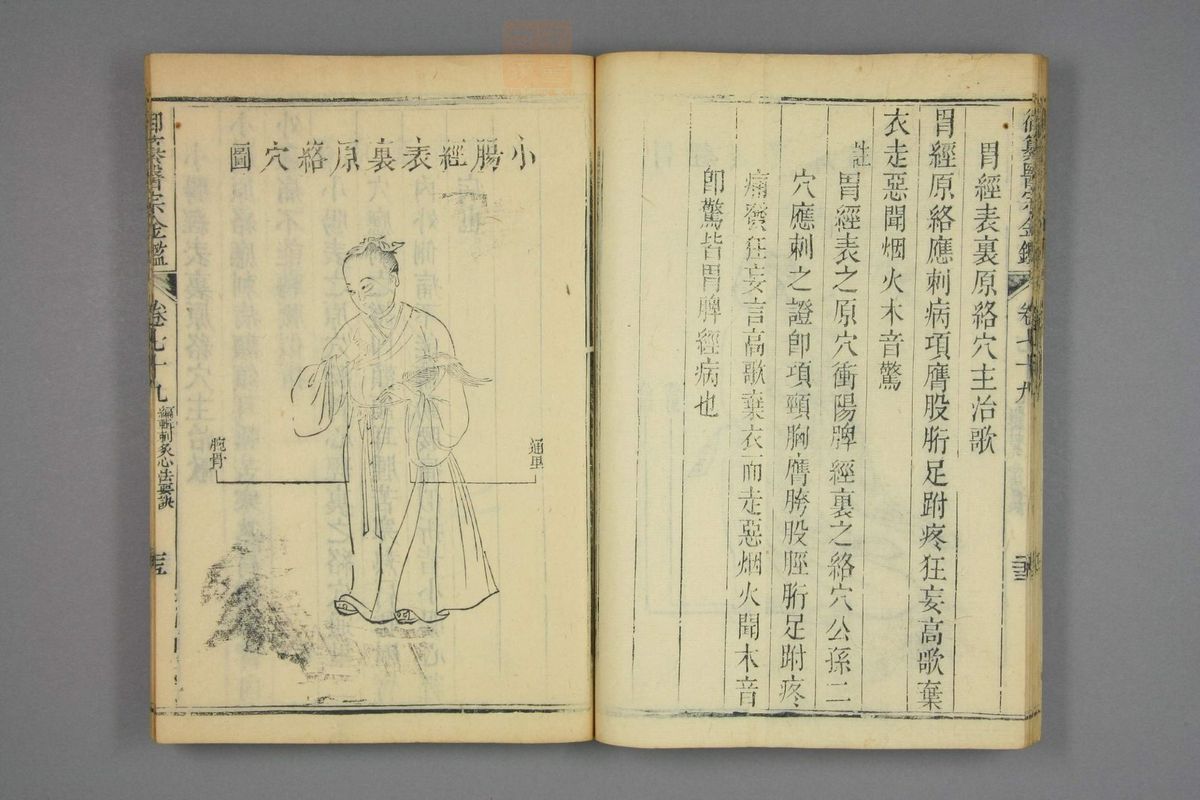 御纂醫宗金鑑
卷七十九
胃經表裏原絡穴主治歌
胃經原絡應刺病項膺股胻足跗疼狂妄高歌棄
衣走惡聞烟火木音驚
註
胃經表之原穴衝陽脾經裏之絡穴公孫二
穴應刺之證即項頸胸膺胯股脛胻足跗疼
痛發狂妄言高歌棄衣而走惡烟火聞木音
即驚皆胃脾經病也
小腸經表裏原絡穴圖
通里
腕骨
御纂醫宗金鑑
卷七十九
編輯刺灸心法要訣